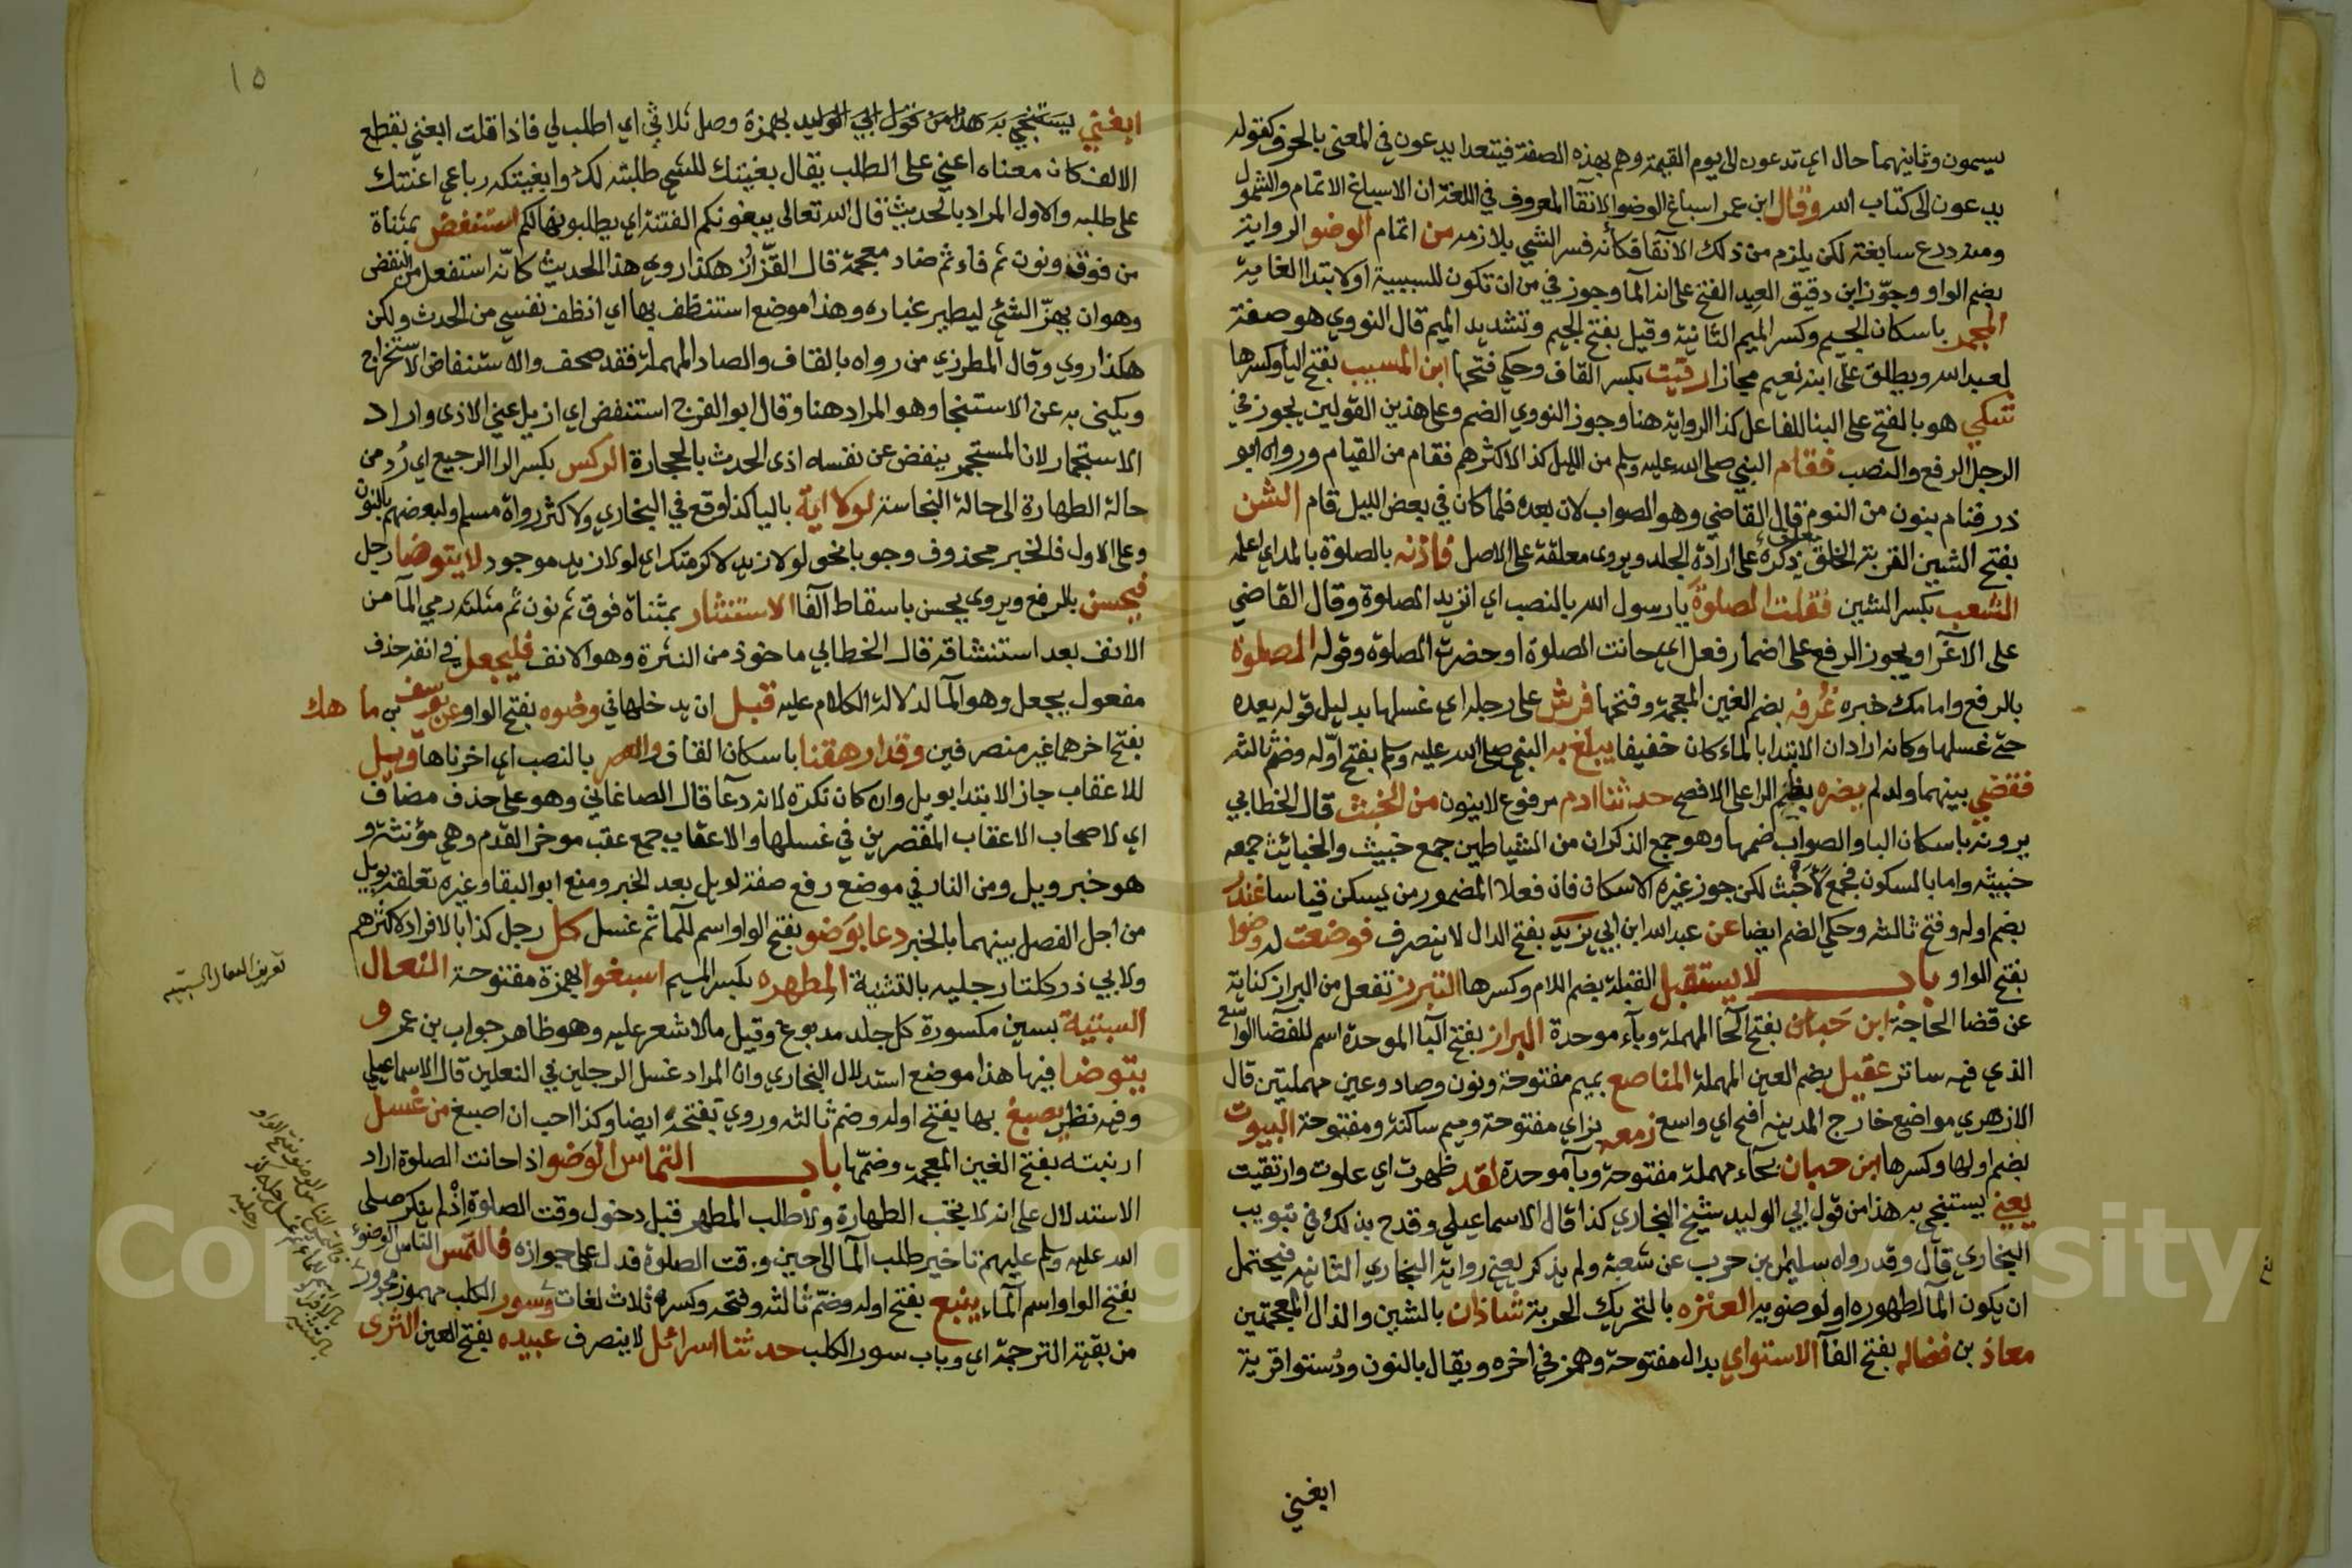 يسيمون وثانيهما حال اي تدعون الى يوم القيمة وهم بهذه الصفة فيتعدا يدعون في المعنى بالحرف كقوله
يدعون الى كتاب الله وقال ابن عمر اسباغ الوضوء الانقآ المعروف في اللغة ان الاسباغ الاتمام والشمول
ومنه درع سابغة لكن يلزم من ذلك الانقا فكأنه فسر الشي بلازمه من اتمام الوضو الرواية
بضم الواو وجوّز ابن دقيق العيد الفتح على انه المآ وجوز في من ان تكون للسببية او لابتدا الغاية
المجمر باسكان الجيم وكسر الميم الثانية وقيل بفتح الجيم وتشديد الميم قال النووي هو صفة
لعبد الله ويطلق على ابنه نعيم مجازا رقيت بكسر القاف وحكي فتحها ابن المسيب بفتح اليا وكسرها
تشكي هو بالفتح على البنا للفاعل كذا الرواية هنا وجوز النووي الضم وعلى هذين القولين يجوز في
الرجل الرفع والنصب فقام النبي صلى الله عليه وسلم من الليل كذا الاكثرهم فقام من القيام ورواه ابو
ذر فنام بنون من النوم قال القاضي وهو الصواب لان بعده فلما كان في بعض الليل قام الشن
بفتح الشين القربة الخلق يعلق ذكره على ارادة الجلد ويروى معلقة على الاصل فاذنه بالصلوة بالمد اي اعلمه
الشعب بكسر الشين فقلت الصلوة يا رسول الله بالنصب اي اتريد الصلوة وقال القاضي
على الاغرآ ويجوز الرفع على اضمار فعل اي حانت الصلوة او حضرت الصلوة وقوله الصلوة
بالرفع وامامك خبره غُرفه بضم الغين المعجمة وفتحها فرش على رجله اي غسلها بدليل قوله بعده
حتى غسلها وكانه اراد ان الابتدا بالماء كان خفيفا يبلغ به النبي صلى الله عليه وسلم بفتح اوّله وضم ثالثه
فقضي بينهما ولد لم يضره بضم الرا على الافصح حدثنا ادم مرفوع لا ينون من الخبث قال الخطابي
يرونه باسكان البا والصواب ضمها وهو جمع الذكران من الشياطين جمع خبيث والخبائث جمع
خبيثه واما بالسكون فجمع لاَخْبَث لكن جوز غيره الاسكان فان فعلا المضموم من يسكن قياسا غندر
بضم اوله وفتح ثالثه وحكي الضم ايضا عن عبد الله ابن ابي يزيد بفتح الدال لا ينصرف فوضعت له وضوا
بفتح الواو باب لا يستقبل القبلة بضم اللام وكسرها التبرز تفعل من البراز كناية
عن قضا الحاجة ابن حَبان بفتح الحآ المهملة وبآء موحدة البراز بفتح البآ الموحدة اسم للفضآ الواسع
الذي فيه ساتر عقيل بضم العين المهملة المناصع بميم مفتوحة ونون وصاد وعين مهملتين قال
الازهري مواضع خارج المدينه افيح اي واسع زمعه بزاي مفتوحة وميم ساكنة ومفتوحة البيوت
بضم اولها وكسرها ابن حبان بحآء مهملة مفتوحة وبآ موحدة لقد ظهرت اي علوت وارتقيت
يعني يستنجي به هذا من قول ابي الوليد شيخ البخاري كذا قال الاسماعيلي وقدح بذلك في تبويب
البخاري قال وقد رواه سليمن بن حرب عن شعبة ولم يذكر يعني رواية البخاري الثانيه فيحتمل
ان يكون المآ لطهوره او لوضويه العنزه بالتحريك الحربة شاذان بالشين والذال المعجمتين
معاذ بن فضاله بفتح الفآ الاستواي بدال مفتوحة وهمز في اخره ويقال بالنون ودُستوا قرية
ابغني
١٥
ابغني يستنجي به هذا من قول ابي الوليد بهمزة وصل ثلاثي اي اطلب لي فاذا قلت ابغني بقطع
الالف كان معناه اعني على الطلب يقال بغيتك للشي طلبته لك وابغيتكه رباعي اعنتك
على طلبه والاول المراد بالحديث قال الله تعالى يبغونكم الفتنة اي يطلبونها لكم استنفض بمثناة
من فوق ونون ثم فاء ثم ضاد معجمة قال القزّاز هكذا روي هذا الحديث كانّه استفعل من النفض
وهو ان يهزّ الشئ ليطير غباره وهذا موضع استنظف بها اي انظف نفسي من الحدث ولكن
هكذا روي وقال المطرزي من رواه بالقاف والصاد المهملة فقد صحف والاستنفاض الاستخراج
ويكنى به عن الاستنجا وهو المراد هنا وقال ابو الفرج استنفض اي ازيل عني الاذى واراد
الاستجمار لان المستجمر ينفض عن نفسه اذى الحدث بالحجارة الركس بكسر الرا الرجيع اي رُد من
حالة الطهارة الى حالة النجاسة لولا اية باليا كذا وقع في البخاري ولاكثر رواة مسلم ولبعضهم بالنون
وعلى الاول فالخبر محذوف وجوبا نحو لولا زيد لاكرمتك اي لولا زيد موجود لا يتوضا رجل
فيحسن بالرفع ويروى يحسن باسقاط الفآ الاستنثار بمثناة فوق ثم نون ثم مثلثه رمي المآ من
الانف بعد استنشاقه قال الخطابي ماخوذ من النثرة وهو الانف فليجعل في انفه حذف
مفعول يجعل وهو المآ لدلالة الكلام عليه قبل ان يدخلها في وضوه بفتح الواو عن يوسف بن ماهك
بفتح اخرهما غير منصرفين وقد ارهقنا باسكان القاف والعصر بالنصب اي اخرناها ويل
للاعقاب جاز الابتدا بويل وان كان نكرة لانه دعآ قال الصاغاني وهو على حذف مضاف
اي لاصحاب الاعقاب المقصرين في غسلها والاعقاب جمع عقب موخر القدم وهي مؤنثة و
هو خبر ويل ومن النار في موضع رفع صفة لويل بعد الخبر ومنع ابو البقا وغيره تعلقه بويل
من اجل الفصل بينهما بالخبر دعا بوَضو بفتح الواو اسم للمآ ثم غسل كل رجل كذا بالافراد لاكثرهم
ولابي ذر كلتا رجليه بالتثنية المِطهره بكسر الميم اسبغوا بهمزة مفتوحة النعال
السبتية بسين مكسورة كل جلد مدبوغ وقيل مالا شعر عليه وهو ظاهر جواب بن عمر و
يتوضا فيها هذا موضع استدلال البخاري وان المراد غسل الرجلين في النعلين قال الاسماعيلي
وفيه نظر يصبغ بها يفتح اوله وضم ثالثه وروي بفتحه ايضا وكذا احب ان اصبغ من غسل
ابنته بفتح الغين المعجمه وضمّها باب التماس الوَضو اذا حانت الصلوة اراد
الاستدلال على انه لا يجب الطهارة ولا طلب المطهر قبل دخول وقت الصلوة اِذْ لم ينكر صلى
الله عليه وسلم عليهم تاخير طلب المآ الى حين وقت الصلوة فدل على جوازه فالتمس الناس الوضوء
بفتح الواو اسم المآء ينبع بفتح اوله وضمّ ثالثه وفتحه وكسره ثلاث لغات وسور الكلب مهموز مجرور
من بقية الترجمة اي وباب سور الكلب حدثنا اسرائل لا ينصرف عبيده بفتح العين الثرى
تعريف النعال السبتيه
Copyright © King Saud University